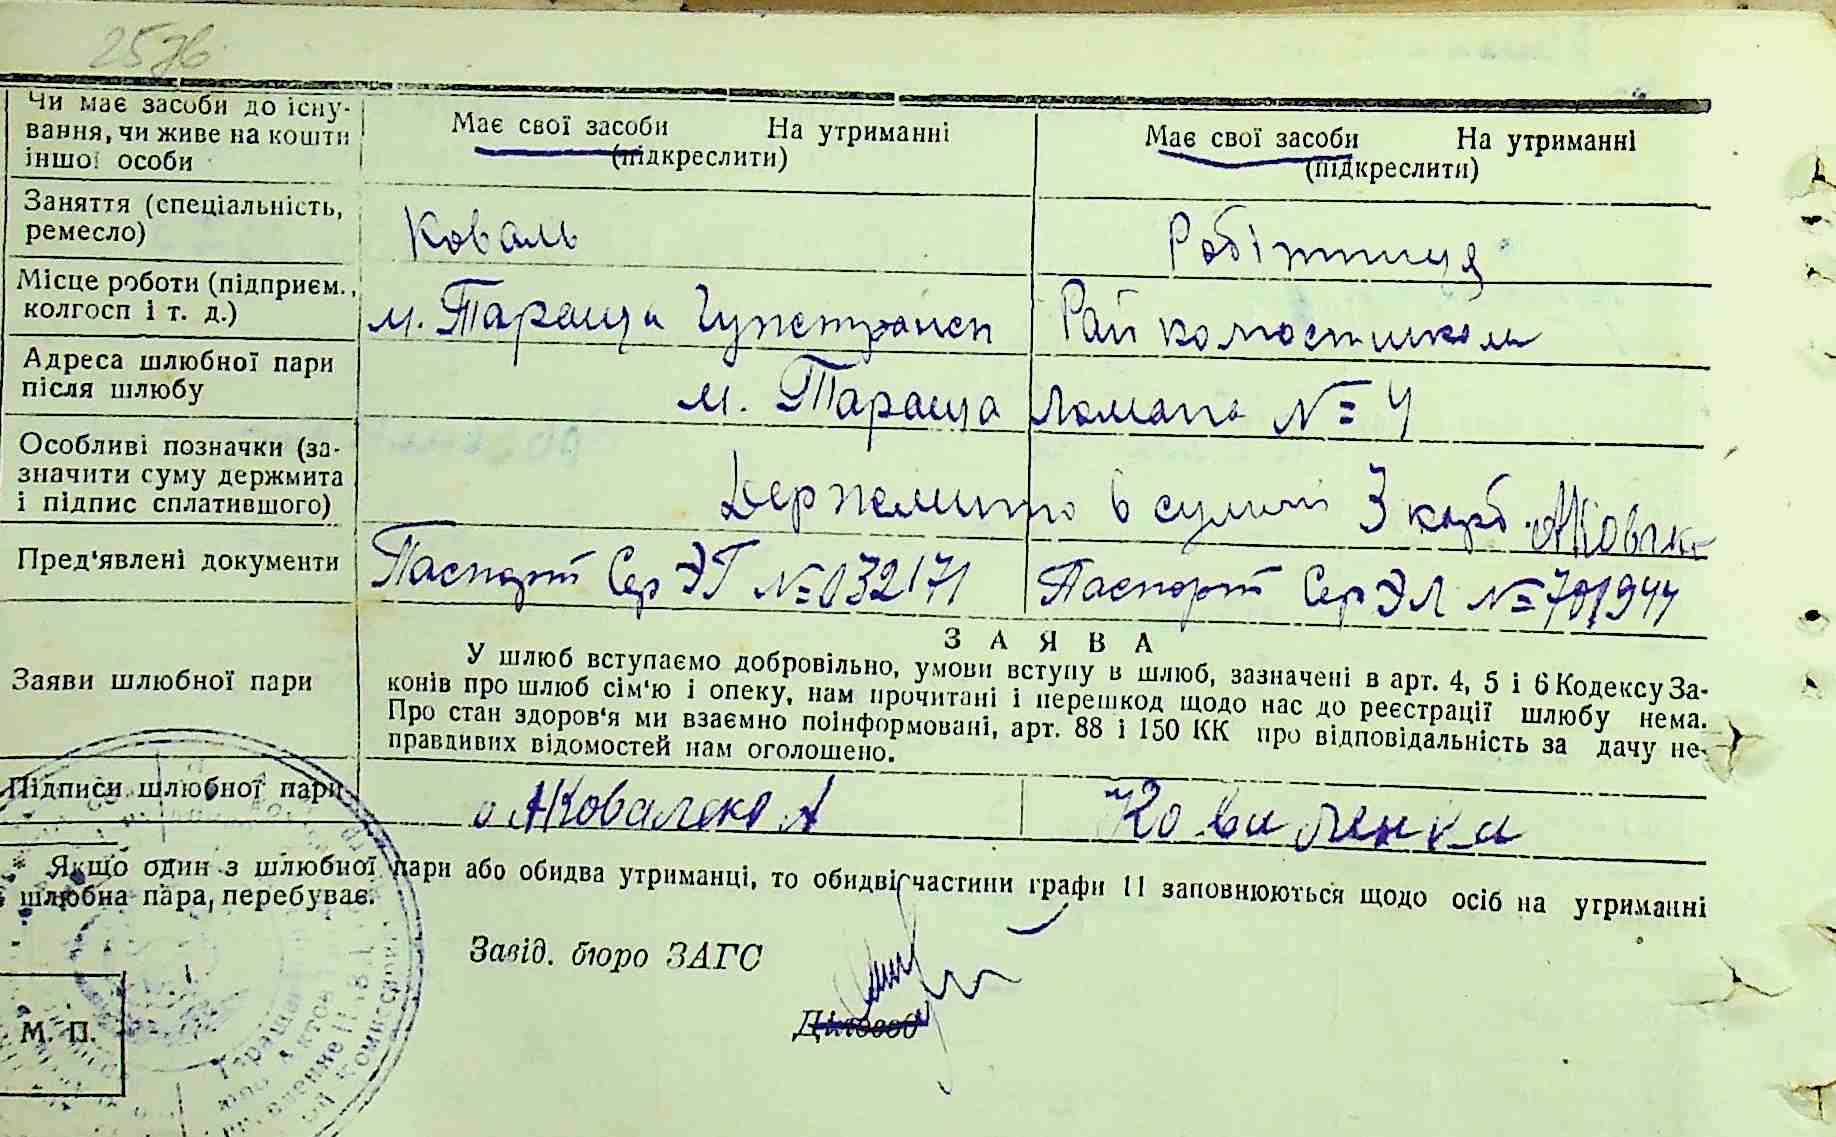 257б
Чи має засоби до існу-
вання, чи живе на кошти
іншої особи
Має свої засоби На утриманні
(підкреслити)
Має свої засоби На утриманні
(підкреслити)
Заняття (спеціальність,
ремесло)
Коваль
Робітниця
Місце роботи (підприєм.,
колгосп і т. д.)
м. Тараща Гужтранс
Рай
Адреса шлюбної пари
після шлюбу
м. Тараща № 4
Особливі позначки (за-
значити суму держмита
і підпис сплатившого)
Держмито в сумі 3 карб.
Пред'явлені документи
Паспорт Сер ЭГ № 032171
Паспорт Сер ЭЛ № 701944
З А Я В А
Заяви шлюбної пари
У шлюб вступаємо добровільно, умови вступу в шлюб, зазначені в арт. 4, 5 і 6 Кодексу За-
конів про шлюб сім'ю і опеку, нам прочитані і перешкод щодо нас до реєстрації шлюбу нема.
Про стан здоров'я ми взаємно поінформовані, арт. 88 і 150 КК про відповідальність за дачу не-
правдивих відомостей нам оголошено.
Підписи шлюбної пари
Якщо один з шлюбної пари або обидва утриманці, то обидві частини графи 11 заповнюються щодо осіб на утриманні
шлюбна пара, перебуває.
Завід. бюро ЗАГС
Діловод
М. П.